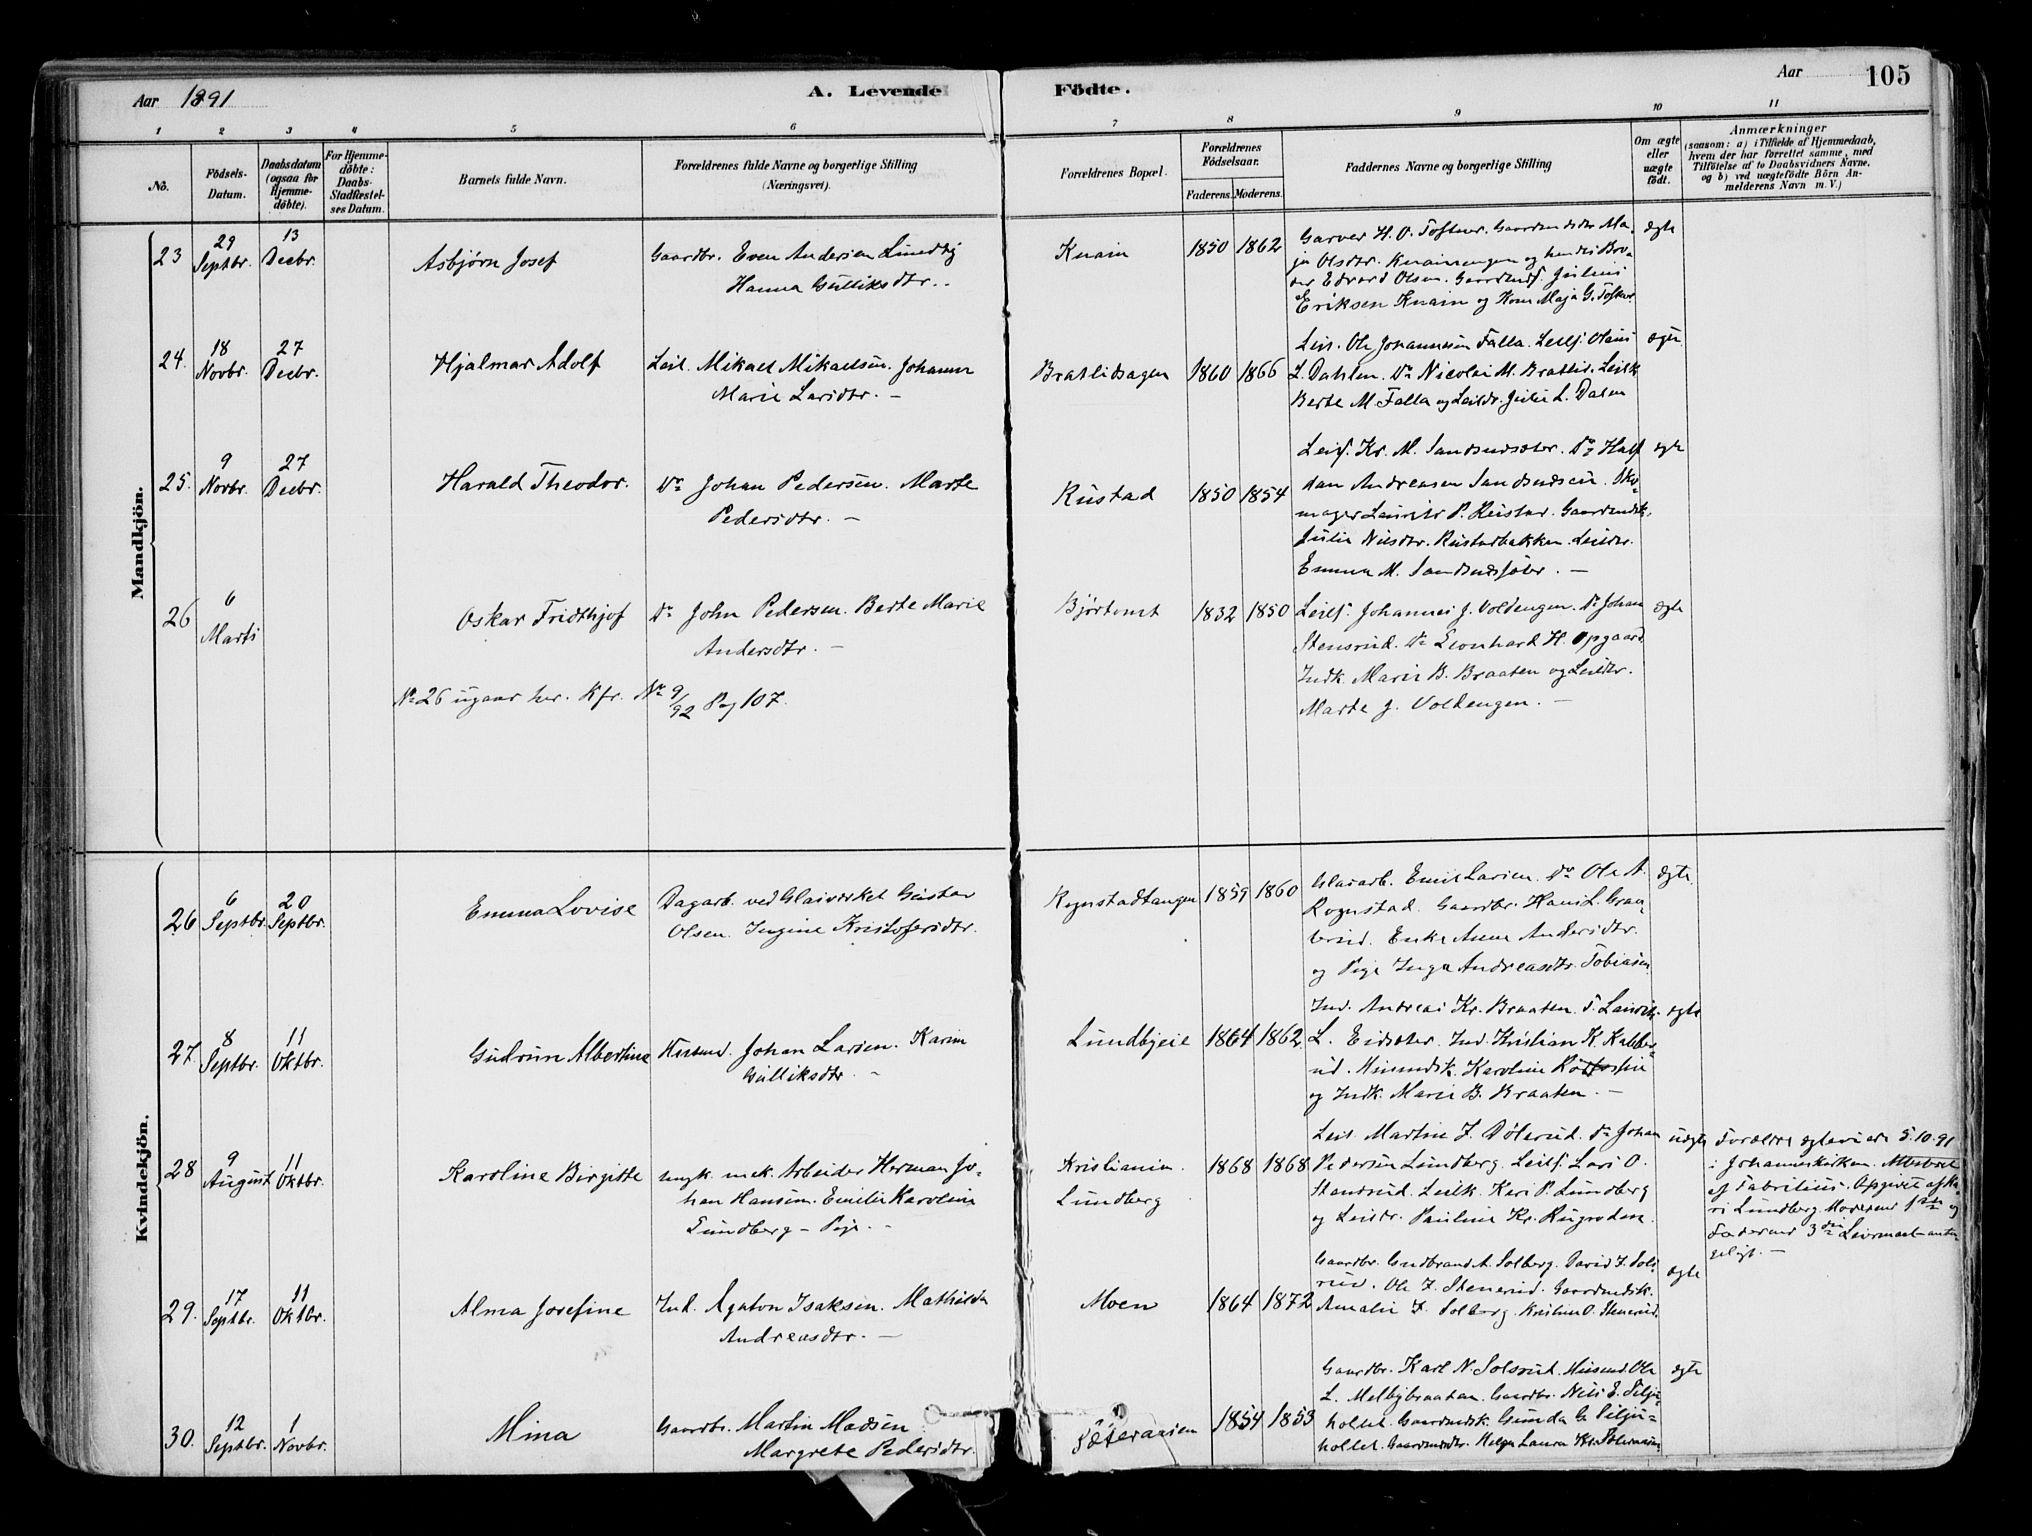 Aar 1891
A. Levende
Födte.
Aar
105
1 2 3 4 5 6 7 8 9 10 11
No.
Födsels-
Datum.
Daabsdatum
(ogsaa for
Hjemme-
döbte).
For Hjemme-
döbte:
Daabs-
Stadfæstel-
ses Datum.
Barnets fulde Navn.
Forældrenes fulde Navne og borgerlige Stilling
(Næringsvei).
Forældrenes Bopæl.
Forældrenes
Födselsaar.
Faderens. Moderens.
Faddernes Navne og borgerlige Stilling
Om ægte
eller
uægte
födt.
Anmærkninger
(saasom: a) i Tilfælde af Hjemmedaab,
hvem der har forrettet samme, med
Tilföielse af to Daabsvidners Navne,
og b) ved uægtefödte Börn An-
melderens Navn m. V.)
Mandkjön.
23
29
Septbr.
13
Decbr.
Asbjørn Josef
Gaardbr. Even Andersen Lundby
Hanna Gulliksdtr.
Knain
1850 1862
Garver H. O. Toftner. Gaardmdsdtr Ma-
ja Olsdtr. Knainengen og hendes Bro-
der Edvard Olsen. Gaardmdf. Julius
Eriksen Knain og Kone Maja G. Toftner
ægte
24.
18
Novbr.
27
Decbr.
Hjalmar Adolf
Leil. Mikael Mikaelsen. Johanne
Marie Larsdtr. —
Bratlidsagen
1860 1866
Leil. Ole Johannesen Falla. Leilf. Olaus
L. Dahlen. Do Nicolai M. Bratlid. Leilk.
Berte M. Falla og Leildr. Julie L. Dalen
ægte
25.
9
Novbr.
27
Decbr.
Harald Theodor.
Do Johan Pedersen. Marte
Pedersdtr. —
Rustad
1850 1854
Leilf. Kr. M. Sandsndsæter. Do Half
dan Andreasen Sandsndseie. Sko-
mager Laurits P. Rustad. Gaardmdsk.
Julie Nilsdtr. Rustadbakken. Leildtr.
Emma M. Sandsndsæter. —
ægte
26
6
Marts
Oskar Fridthjof
Do John Pedersen. Berte Marie
Andersdtr. —
Bjørtomt
1832 1850
Leilf. Johannes J. Voldengen. Do Johan
Stensrud. Do Leonhard H. Opgaard
Indk. Marie B. Braaten og Leildtr.
Marte J. Voldengen. —
ægte
No 26 udgaar her. Kfr. No 9/92 Pag 107.
Kvindekjön.
26
6
Septbr.
20
Septbr.
Emma Lovise
Dagarb. ved Glasværket Gustav
Olsen. Ingine Kristofersdtr.
Rognstadtangen
1859 1860
Glasarb. Emil Larsen. Do Ole A.
Rognstad. Gaardbr. Hans L. Graa-
berud. Enke Anne Andersdtr.
og Pige Inga Andreasdtr. Tobiasen
ægte
27.
8
Septbr.
11
Oktbr.
Gudrun Albertine
Husmd. Johan Larsen. Karen
Gulliksdtr. -
Lundbyeie
1864 1862
Ind. Andreas Kr. Braaten. T. Laurits
L. Eidsæter. Ind. Kristian K. Kabber-
ud. Husmdsk. Karoline
og Indk. Marie B. Braaten. —
ægte
28
9
August
11
Oktbr.
Karoline Birgitte
ungk. mek. Arbeider Herman Jo-
han Hansen. Emilie Karoline
Lundberg — Pige. -
Kristiania.
Lundberg
1868 1868
Leil. Martin J. Dølerud. Do Johan
Pedersen Lundberg. Leilf. Lars O.
Stensrud. Leilk. Kari P. Lundberg
og Leildr. Pauline Kr. Rugroden.
uægte
Forældre ægteviede 5.10.91
i Johanneskirken. Attesteret
af Fabritius. Opgivet af Ka-
ri Lundberg. Moderens 1ste og
Faderens 3die Leiermaal — anta-
gelig. —
29.
17
Septbr.
11
Oktbr.
Alma Josefine
Ind. Agaton Isaksen. Mathilde
Andreasdtr. —
Moen
1864 1872
Gaardbr. Gudbrand A. Solberg. David J. Sols-
rud. Ole J. Stenerud. Gaardmdsk.
Amalie J. Solberg. Kristine O. Stenerud.
ægte
30.
12
Septbr.
1
Novbr.
Mina
Gaardbr. Martin Madsen.
Margrete Pedersdtr.
Sæteraasen
1854 1853
Gaardbr. Karl N. Solsrud. Husmd. Ole
L. Melbybraatan. Gaardbr. Nils E. Silju-
hollet. Gaardmdsk. Gunda G. Silju-
hollet. Gaardmdsdtr. Helga Laura Kr.
ægte